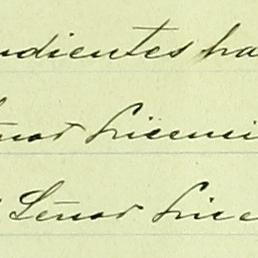 ndientes ha
Señor Licenci
Señor Lice